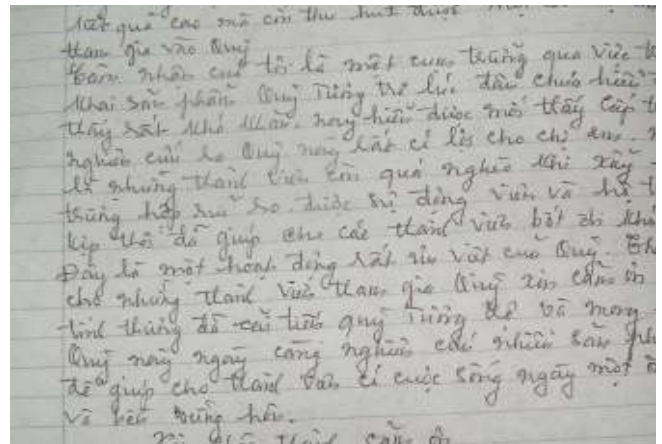 kết quả cao mà còn thu hút được
tham gia vào Quỹ
bản thân của tôi là một cụm trưởng qua việc
khai sản phẩm Quỹ Tương trợ lúc đầu chưa hiểu
thấy rất khó khăn. nay hiểu được mới thấy cấp
nghiên cứu ra Quỹ này rất có lợi cho chị em.
là những thành viên còn quá nghèo khi xảy
trường hợp rủi ro. được sự động viên và hỗ
kịp thời đã giúp cho các thành viên bớt đi khó
Đây là một hoạt động rất của Quỹ.
cho những thành viên tham gia Quỹ xin cảm ơn
tình thương đã quỹ Tương trợ và mong
Quỹ này ngày càng nghiên cứu nhiều sản
để giúp cho thành viên có cuộc sống ngày một
và bền vững hơn.
thành cảm ơn